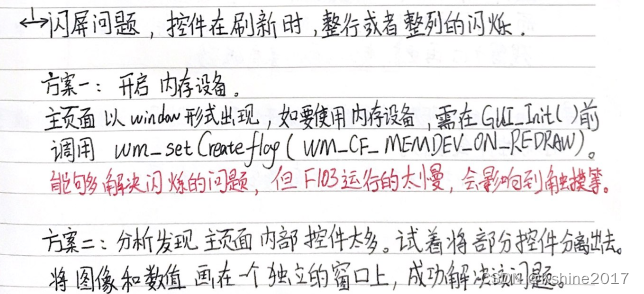 ↔闪屏问题，控件在刷新时，整行或者整列的闪烁.
方案一：开启内存设备。
主页面以window形式出现，如要使用内存设备，需在GUI_Init()前
调用 WM_setCreateflag(WM_CF_MEMDEV_ON_REDRAW)。
能够多解决闪烁的问题，但F103运行的太慢，会影响到触摸等。
方案二：分析发现主页面内部控件太多。试着将部分控件分离出去。
将图像和数值画在一个独立的窗口上，成功解决该问题。
shine2017